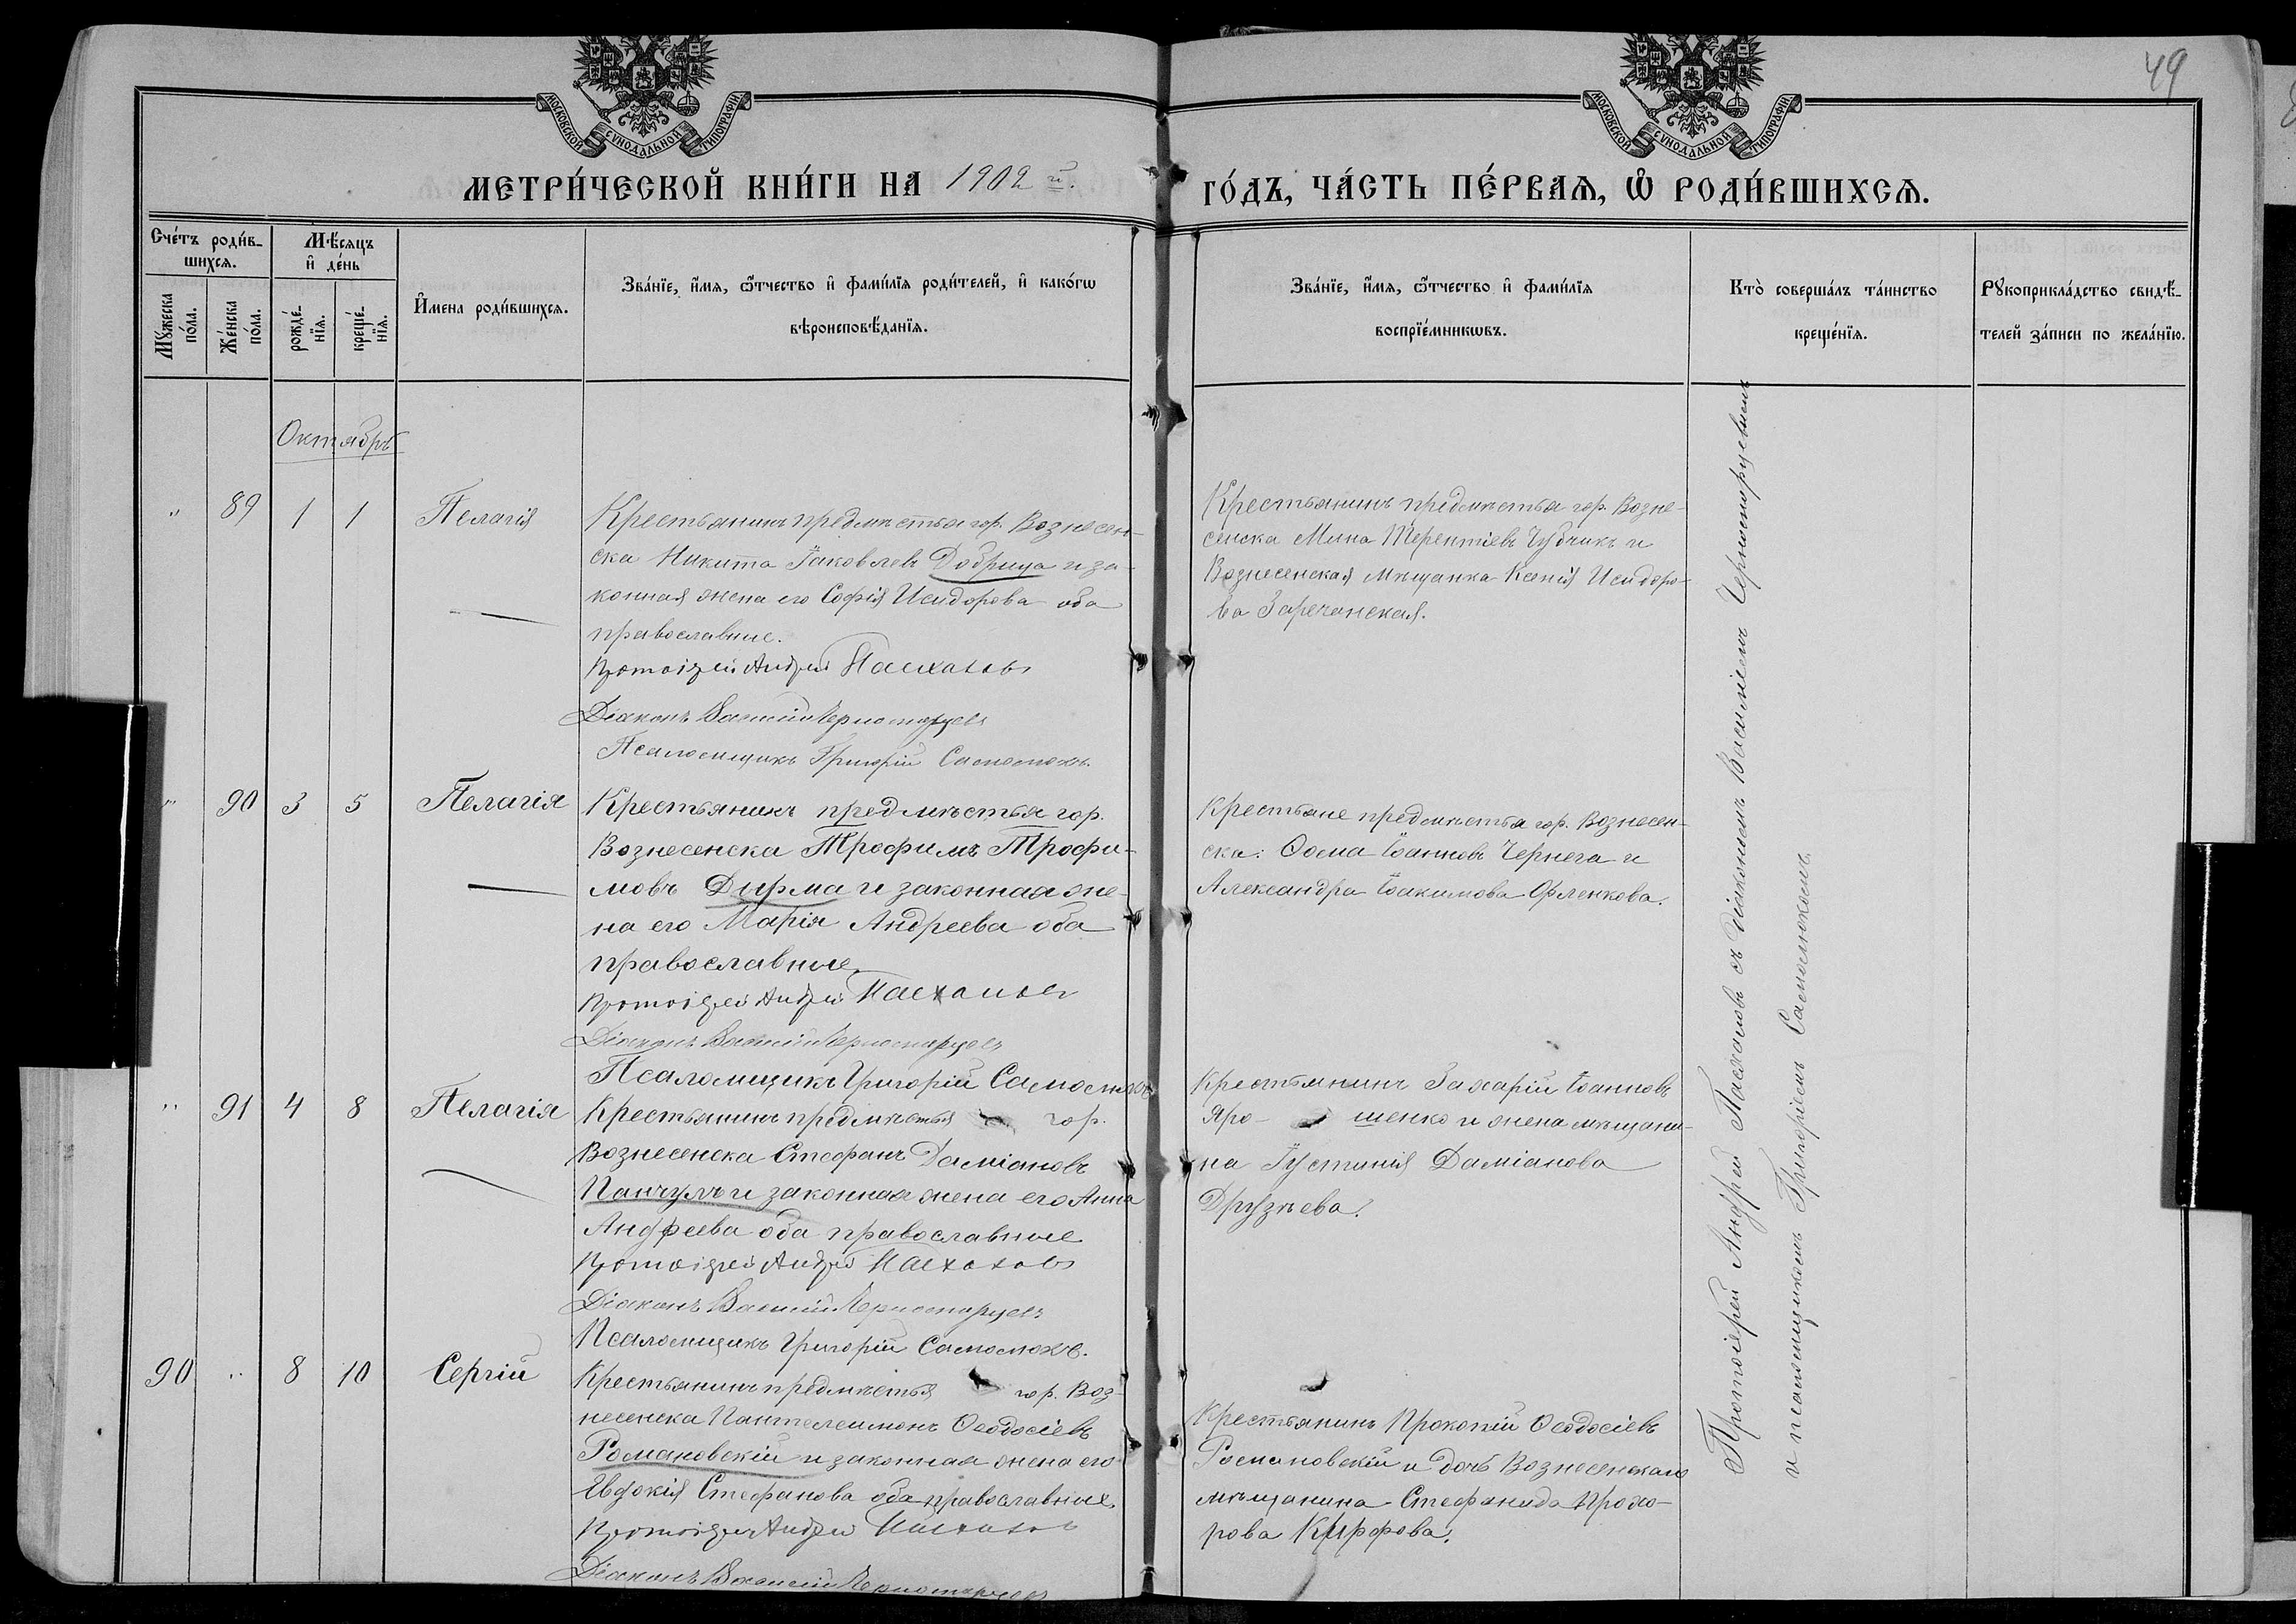 49
МОСКОВСКОЙ СѴНОДАЛЬНОЙ ТИПОГРАФІИ
МОСКОВСКОЙ СѴНОДАЛЬНОЙ ТИПОГРАФІИ
МЕТРИ́ЧЕСКОЙ КНИ́ГИ НА 1902 й.
ГО́ДЪ, ЧА́СТЬ ПЕ́РВАѦ, Ѡ҆ РОДИ́ВШИХСѦ.
Сче́тъ роди́в-
шихсѧ.
Мꙋ́жеска
по́ла.
Же́нска
по́ла.
Мѣ́сѧцъ
и҆ де́нь
рожде́-
нїѧ.
креще́-
нїѧ.
И҆мена роди́вшихсѧ.
Зва́нїе, и҆́мѧ, ѻ҆́тчество и҆ фами́лїѧ роди́телей, и҆ како́гѡ
вѣроисповѣ́данїѧ.
Зва́нїе, и҆́мѧ, ѻ҆́тчество и҆ фами́лїѧ
воспрїе́мникѡвъ.
Кто̀ соверша́лъ та́инство
креще́нїѧ.
Рꙋкоприкла́дство свидѣ́-
телей за́писи по жела́нїю.
Октябрь
" 89 1 1 Пелагія
Крестьянинъ предмѣстья гор. Вознесен-
ска Никита Іаковлевъ Добрица и за-
конная жена его Софія Исидорова оба
православные.
Протоіерей Андрей Пасхаловъ
Діаконъ Василій Черноштруцевъ
Псаломщикъ Григорій Самосмохъ.
Крестьянинъ предмѣстья гор. Возне-
сенска Мина Терентіевъ Чубчикъ и
Вознесенская мѣщанка Ксенія Исидоро-
ва Заречанская.
" 90 3 5 Пелагія
Крестьянинъ предмѣстья гор.
Вознесенска Трофимъ Трофи-
мовъ Дирма и законная же-
на его Марія Андреева оба
православные.
Протоіерей Андрей Пасхаловъ
Діаконъ Василій
Псаломщикъ Григорій
Крестьяне предмѣстья гор. Вознесен-
ска: Ѳома Іоанновъ Чернега и
Александра Іоакимова Орленкова.
" 91 4 8 Пелагія
Крестьянинъ предмѣстья гор.
Вознесенска Стефанъ Даміановъ
Панчулъ и законная жена его Анна
Андреева оба православные
Протоіерей Андрей Пасхаловъ
Діаконъ Василій
Псаломщикъ Григорій
Крестьянинъ Захарій Іоанновъ
Яро- шенко и жена мѣщани-
на Іустинія Даміанова
Друзѣева.
90 " 8 10 Сергій
Крестьянинъ предмѣстья гор. Воз-
несенска Пантелеимонъ Ѳеодосіевъ
Романовскій и законная жена его
Евдокія Стефанова оба православные.
Протоіерей Андрей Пасхаловъ
Діаконъ Василій
Крестьянинъ Прокопій Ѳеодосіевъ
Романовскій и дочь Вознесенскаго
мѣщанина Стефанида Прохо-
рова
Протоіерей Андрей Пасхаловъ съ діакономъ Василіемъ
и псаломщикомъ Григоріемъ